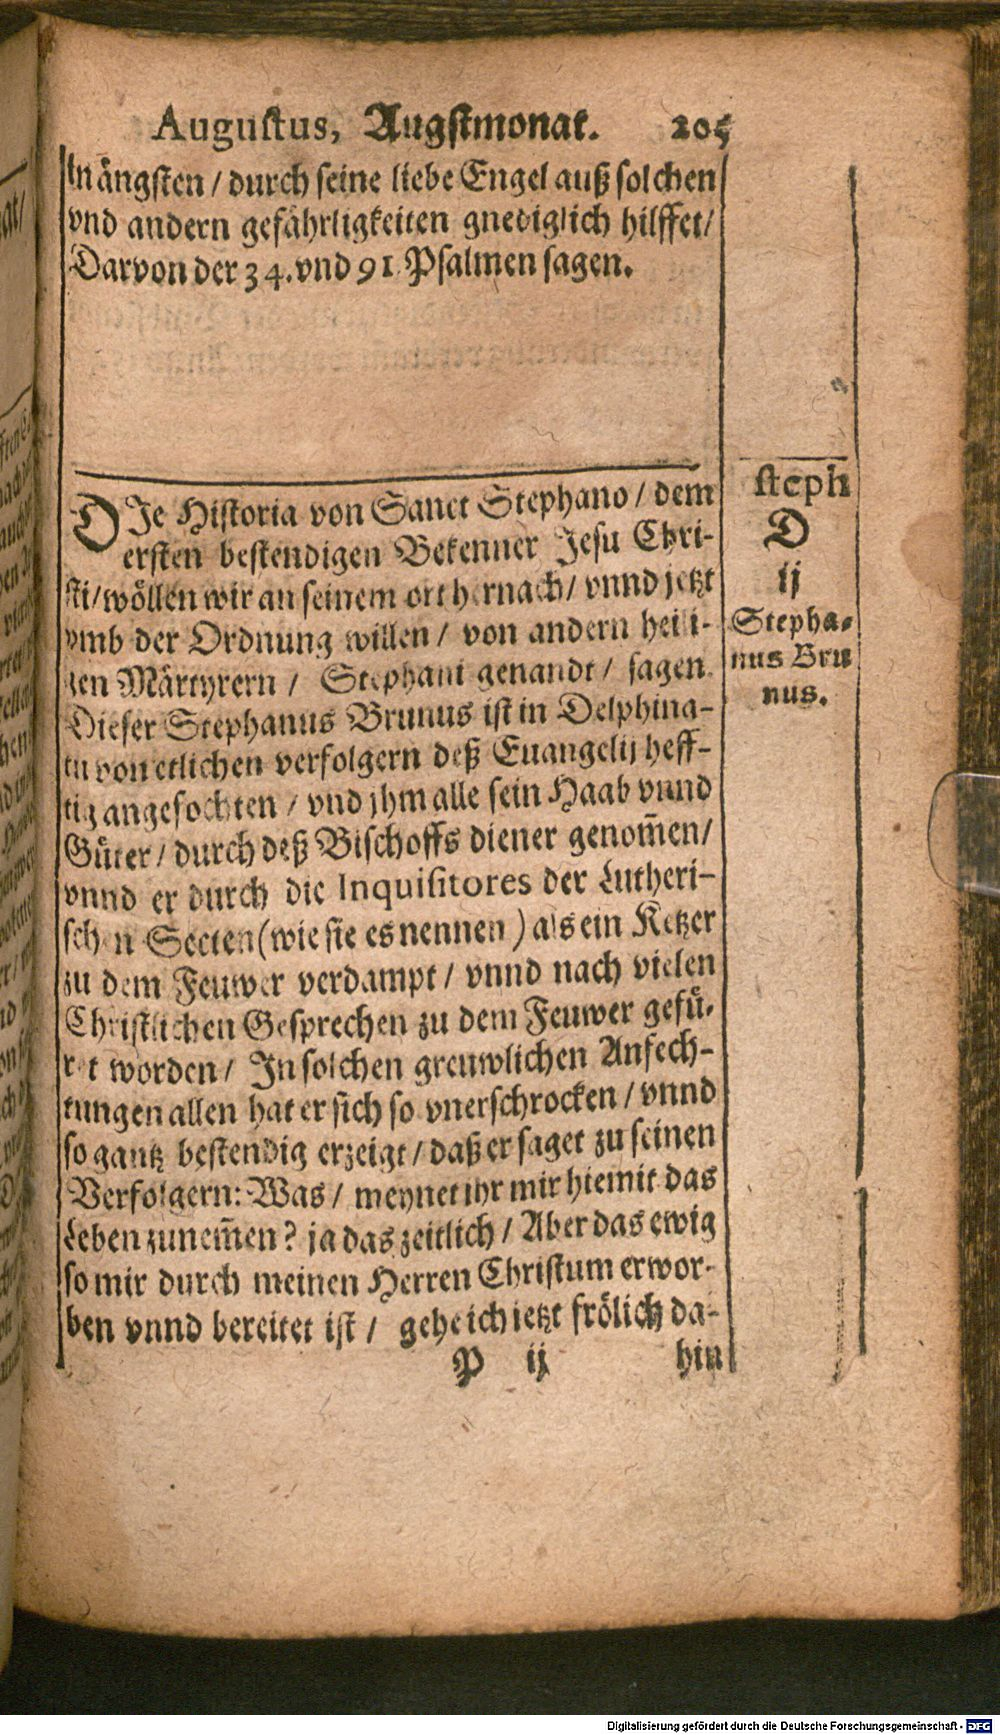 Augustus, Augstmonat. 205
in ängsten / durch seine liebe Engel auß solchen
vnd andern gefährligkeiten gnediglich hilffet /
Darvon der 34. vnd 91. Psalmen sagen.
DIe Historia von Sanct Stephano / dem
ersten bestendigen Bekenner Jesu Chri-
sti / wöllen wir an seinem ort hernach / vnnd jetzt
vmb der Ordnung willen / von andern heili-
gen Märtyrern / Stephani genandt / sagen.
Dieser Stephanus Brunus ist in Delphina-
tu von etlichen verfolgern deß Euangelij heff-
tig angefochten / vnd jhm alle sein Haab vnnd
Güter / durch deß Bischoffs diener genom̄en /
vnnd er durch die Inquisitores der Lutheri-
schen Secten (wie sie es nennen) als ein Ketzer
zu dem Feuwer verdampt / vnnd nach vielen
Christlichen Gesprechen zu dem Feuwer gefü-
ret worden / In solchen greuwlichen Anfech-
tungen allen hat er sich so vnerschrocken / vnnd
so gantz bestendig erzeigt / daß er saget zu seinen
Verfolgern: Was / meynet ihr mir hiemit das
Leben zunem̄en? ja das zeitlich / Aber das ewig
so mir durch meinen Herren Christum erwor-
ben vnnd bereitet ist / gehe ich jetzt frölich da-
P ij hin
steph
D
ij
Stepha-
nus Bru
nus.
Digitalisierung gefördert durch die Deutsche Forschungsgemeinschaft - DFG